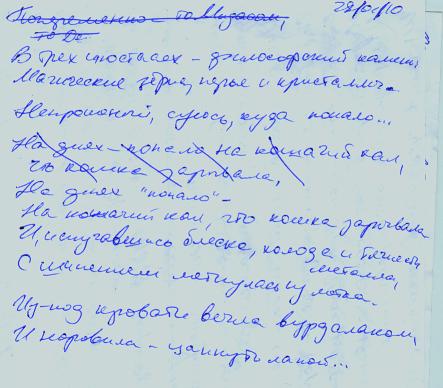 28/01/10
В трех ипостасях – философский камень
Магические зёрна, перье и кристаллич.
Непрошеный, суюсь, куда попало...
На днях – попала на кошачий кал,
Что кошка зарывала,
На днях "попало" –
На кошачий кал, что кошка зарывала
И, испугавшись блеска, холода и тяжести
металла,
С шипением метнулась из лотка.
Из-под кровати выла вурдалаком,
И норовила – цапнуть лапой...